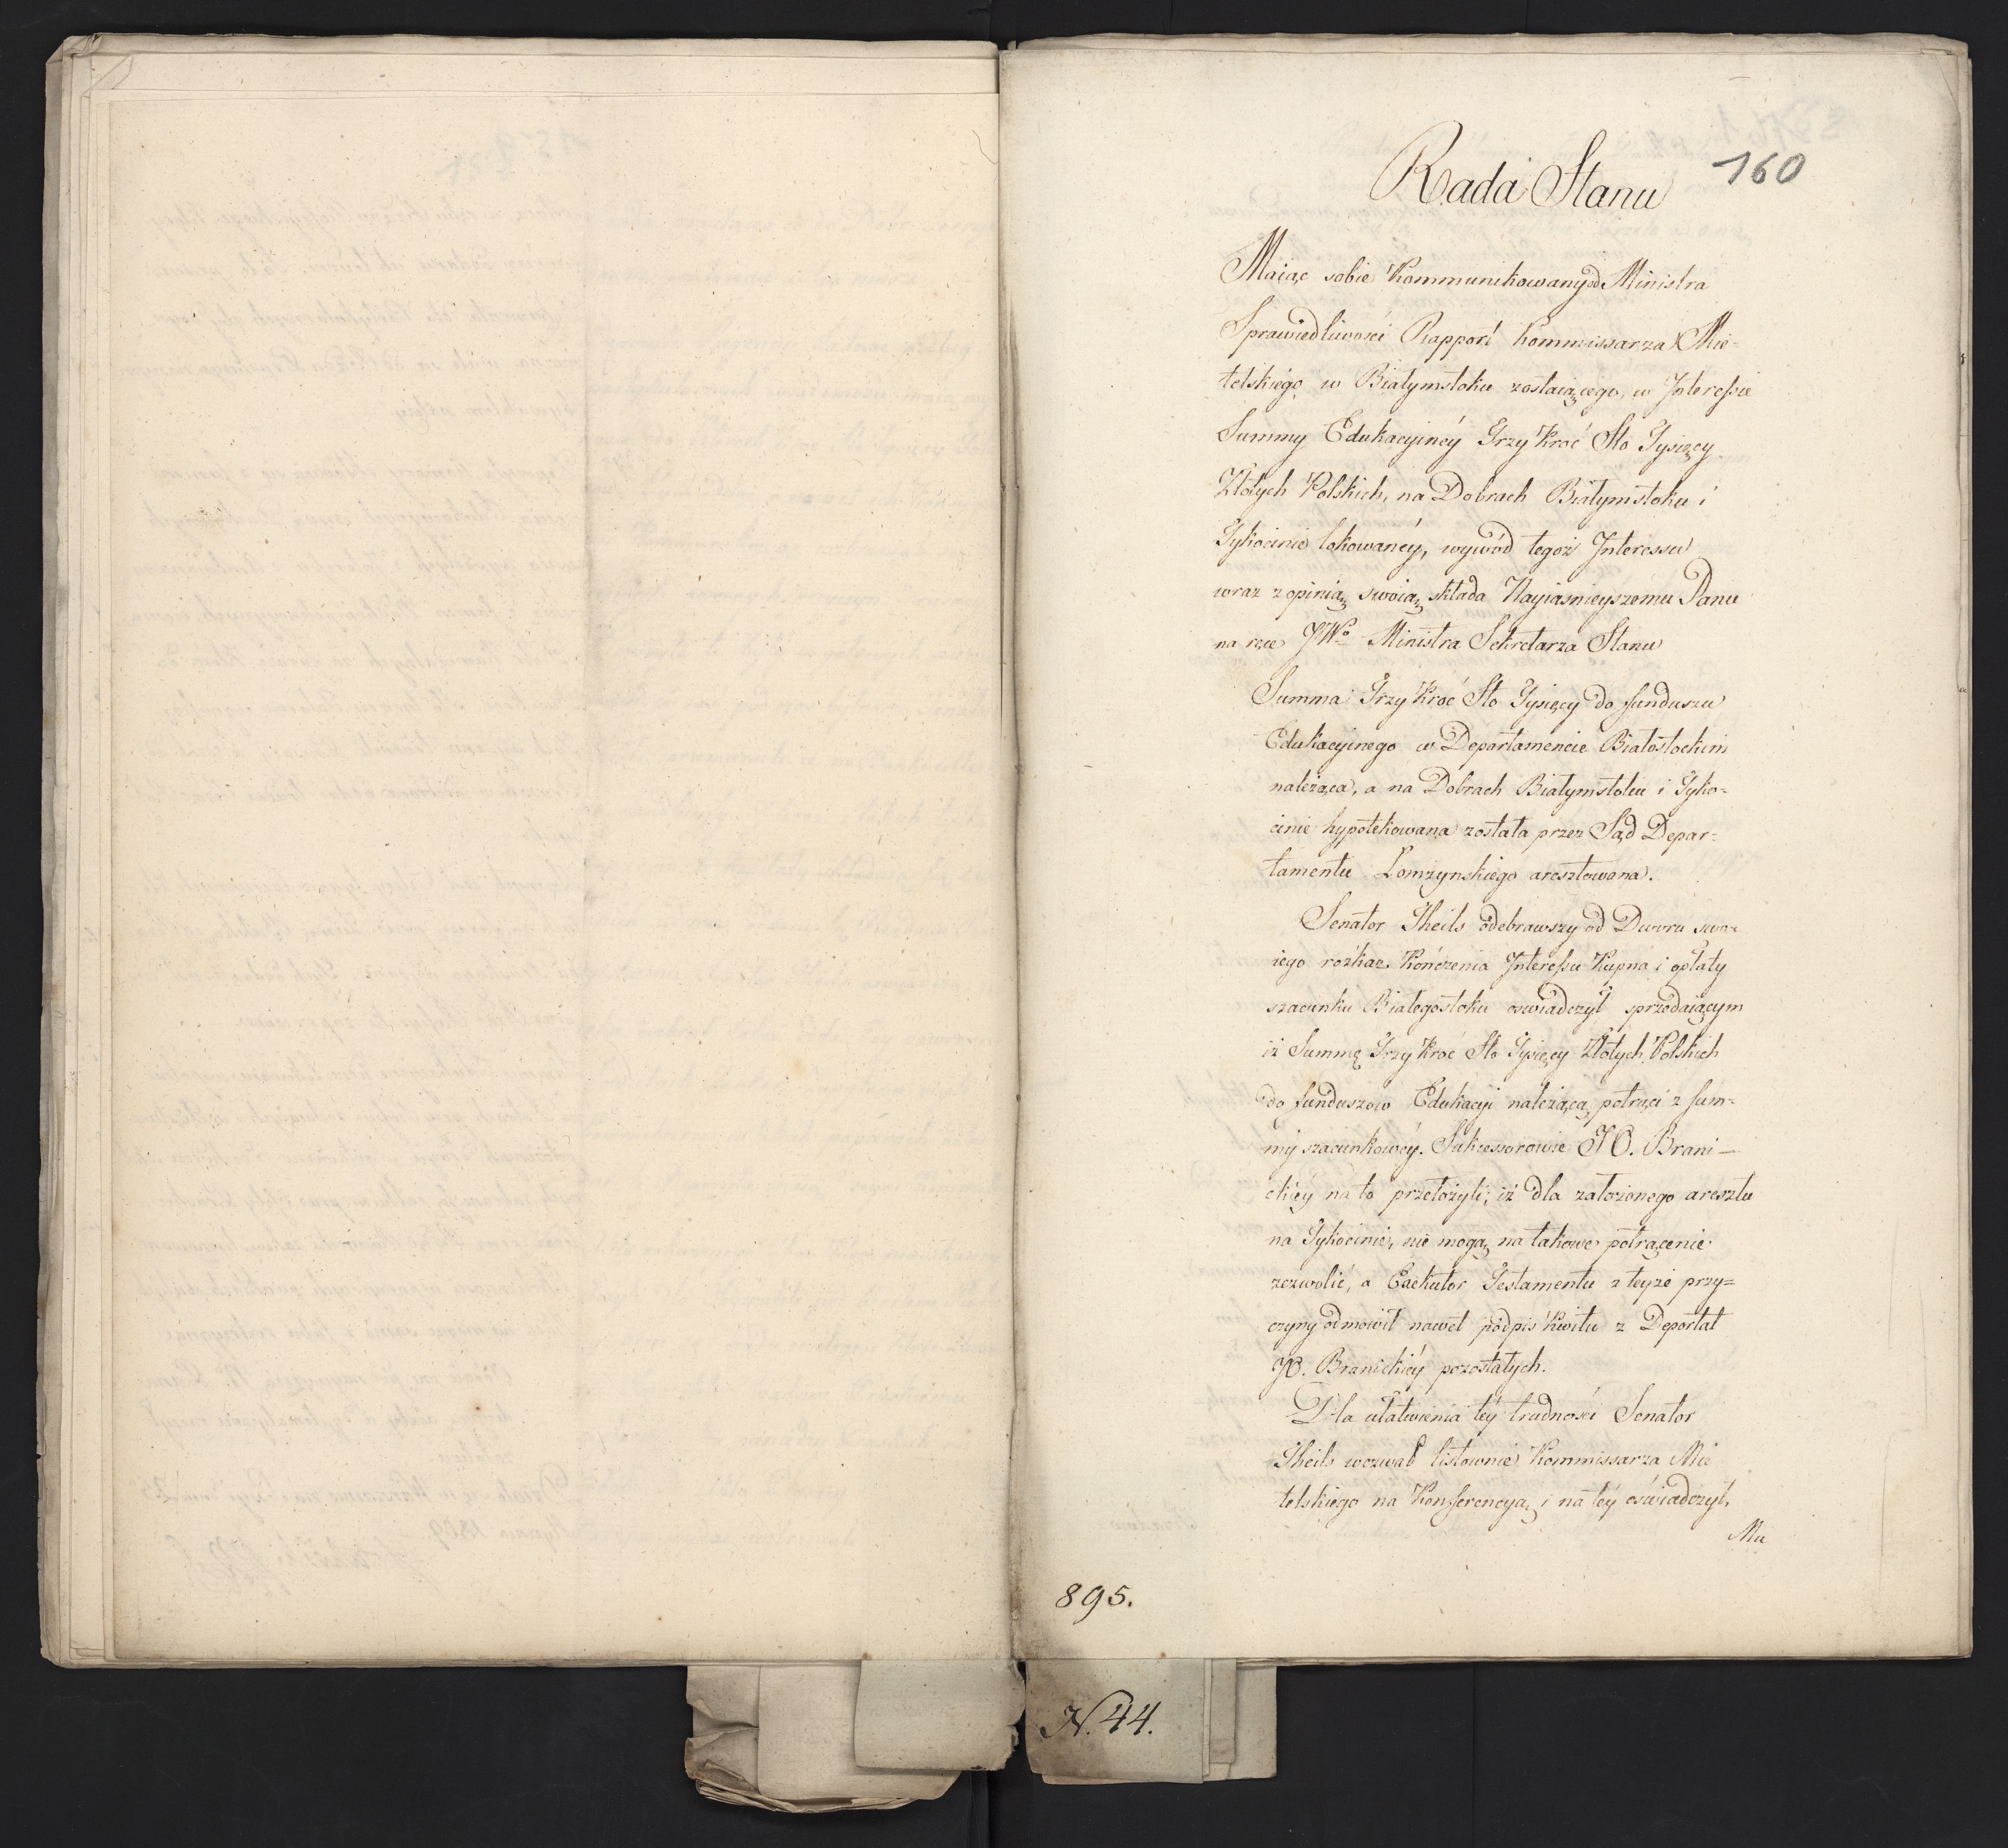 160
Rada Stanu
Maiąc sobie Kommunikowany od Ministra
Sprawiedliwości Rapport Kommissarza Mie-
telskiego w Białymstoku zostaiącego, w Interessie
Summy Edukacyinéy Trzy Kroć Sto Tysięcy
Złotych Polskich, na Dobrach Białymstoku i
Tykocinie lokowanéy, wywód tegoż Interessu
wraz z opinią swoią składa Nayiaśnieyszemu Panu
na ręce JWo Ministra Sekretarza Stanu
Summa Trzy Kroć Sto Tysięcy do funduszu
Edukacyinego w Departamencie Białostockim
należąca, a na Dobrach Białymstoku i Tyko-
cinie hypotekowana została przez Sąd Depar-
tamentu Łomzynskiego aresztowana.
Senator Theils odebrawszy od Dworu swo-
iego rózkaz Kończenia Interessu Kupna i opłaty
szacunku Białegostoku oswiadczył sprzedaiącym
iż Summę Trzy Kroć Sto Tysięcy Złotych Polskich
do funduszow Edukacyi należącą, potrąci z sum-
my szacunkowéy. Sukcessorowie JO. Brani-
ckiéy na to przełożyli, iż dla założonego aresztu
na Tykocinie, nie mogą na takowe potrącenie
zezwolić, a Exekutor Testamentu z teyże przy-
czyny odmówił nawet podpis Kwitu z Deportat
JO. Branickiéy pozostałych.
Dla ułatwienia téy trudności Senator
Theils wezwał listownie Kommissarza Mie
telskiego na Konferencyą, i na téy oświadczył,
Mu
895.
N. 44.